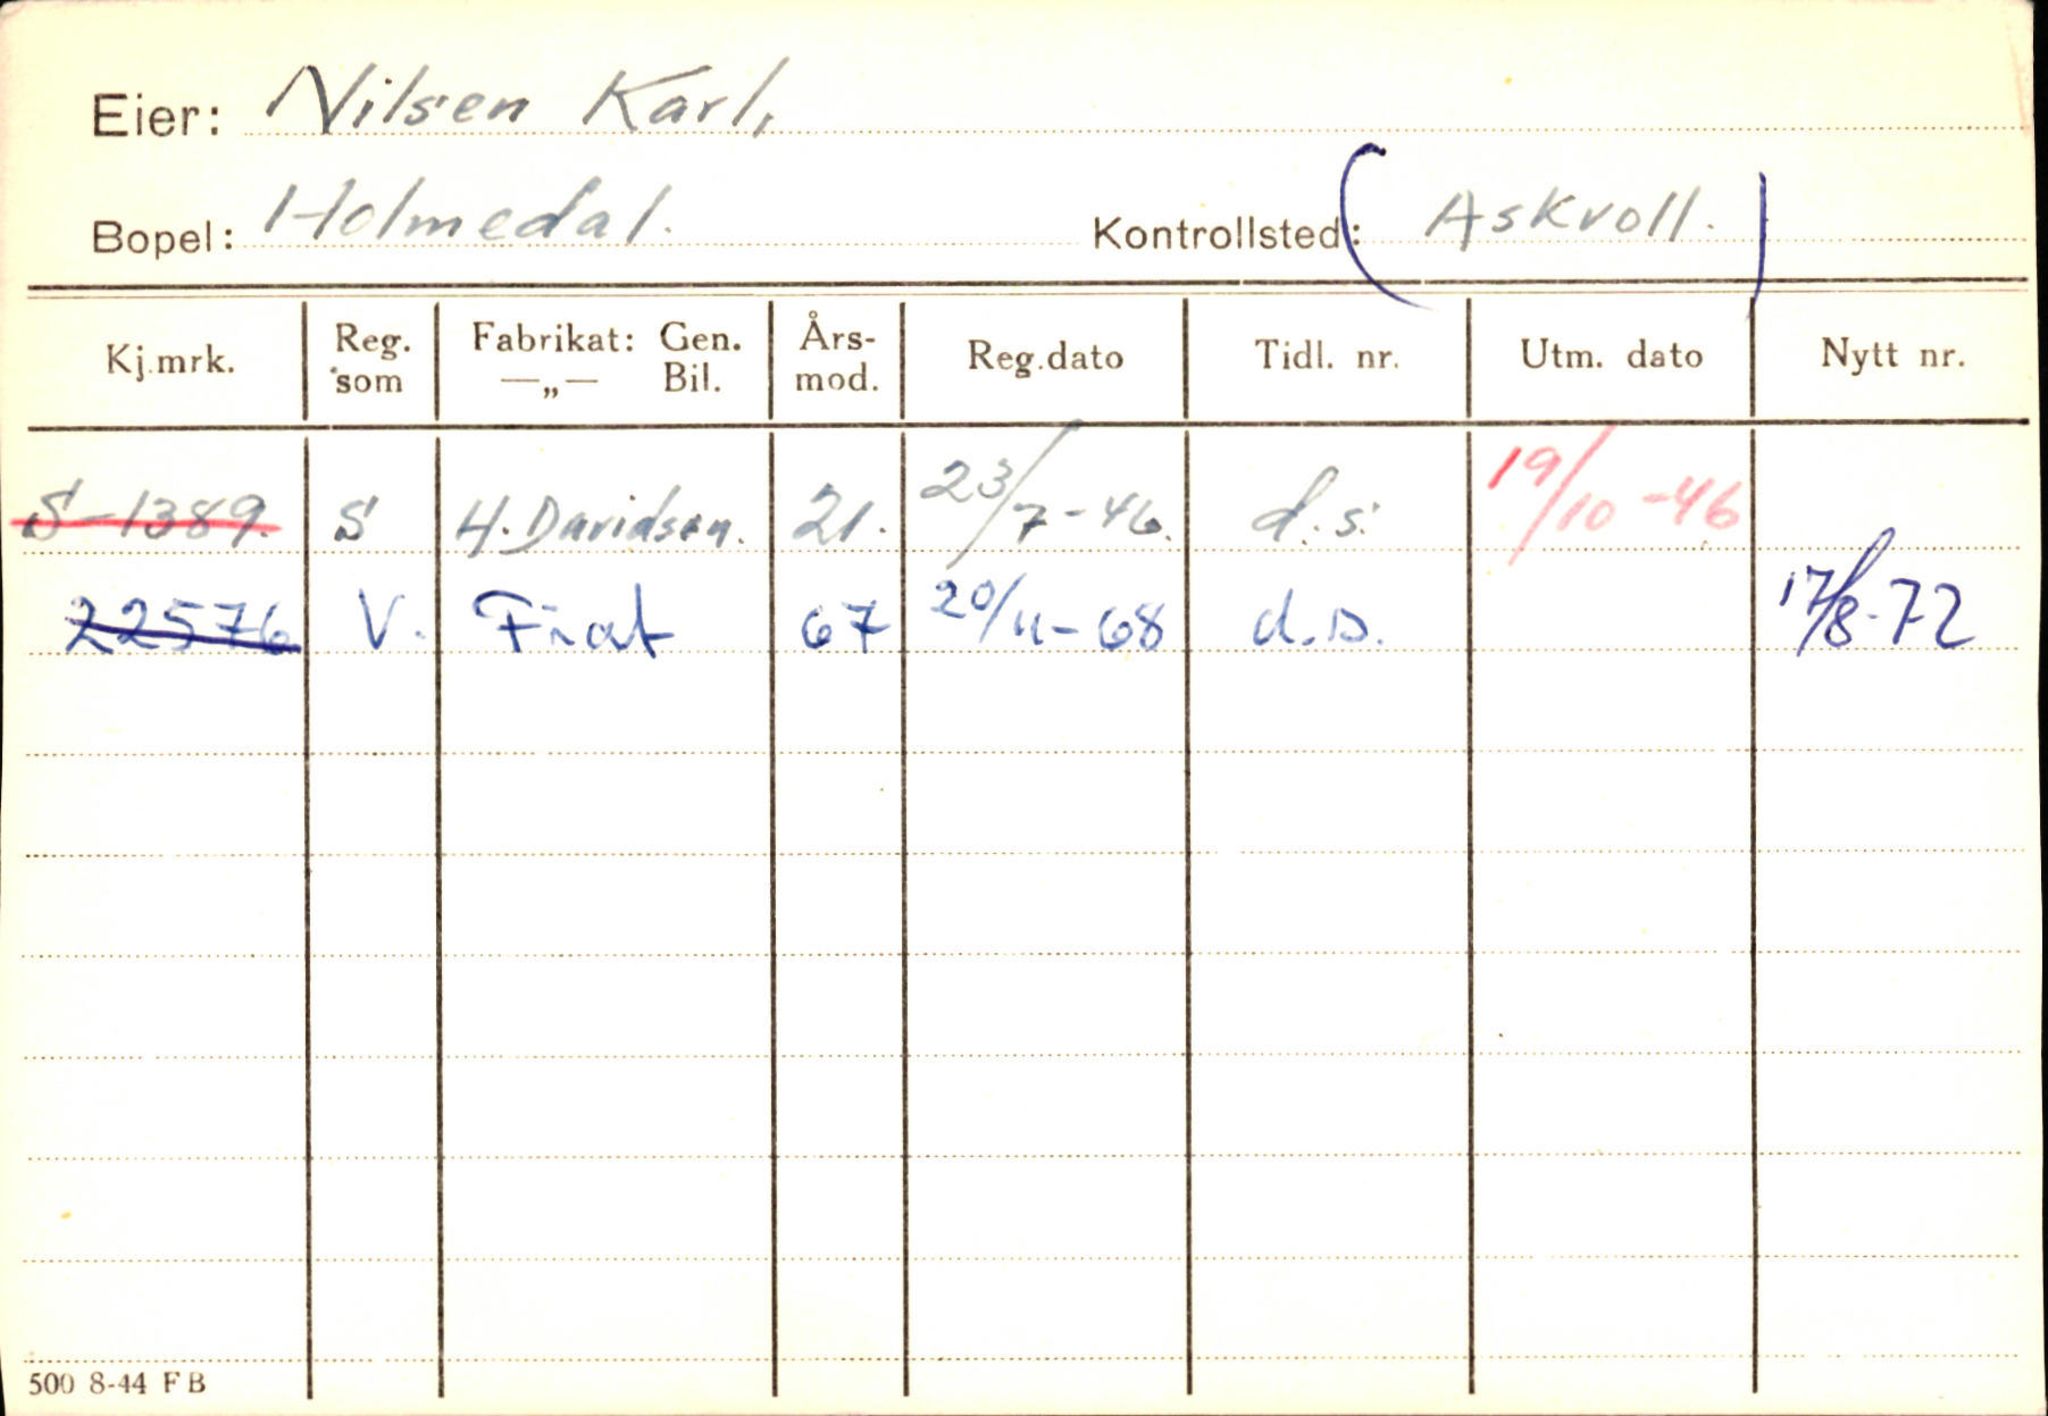 Eier: Nilsen Karl,
Bopel: Holmedal. Kontrollsted: (Askvoll.)
Kj.mrk. Reg. som Fabrikat: Gen. —„— Bil. Års-mod. Reg.dato Tidl. nr. Utm. dato Nytt nr.
S-1389. S H. Davidsen. 21. 23/7-46. d.s. 19/10-46
22576 V. Fiat 67 20/11-68 d.s. 17/8-72
500 8-44 F B